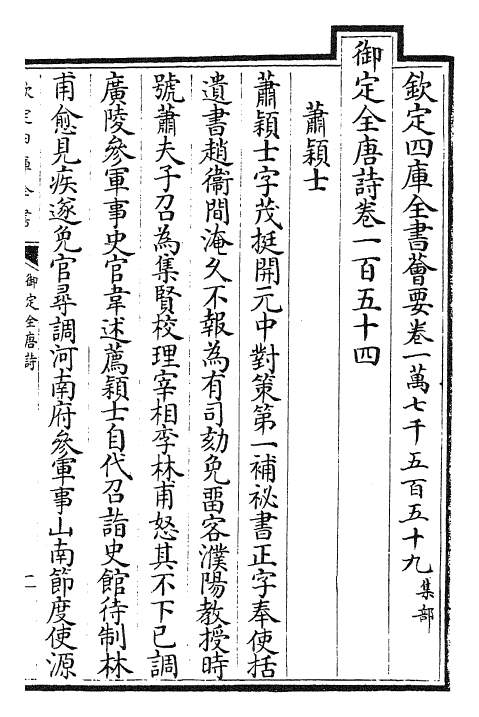 欽定四庫全書薈要卷一萬七千五百五十九集部
御定全唐詩卷一百五十四
蕭穎士
蕭穎士字茂挺開元中對策第一補祕書正字奉使括
遺書趙衞間淹久不報為有司劾免留客濮陽教授時
號蕭夫子召為集賢校理宰相李林甫怒其不下已調
廣陵參軍事史官韋述薦穎士自代召詣史館待制林
甫愈見疾遂免官尋調河南府參軍事山南節度使源
欽定四庫全書
御定全唐詩